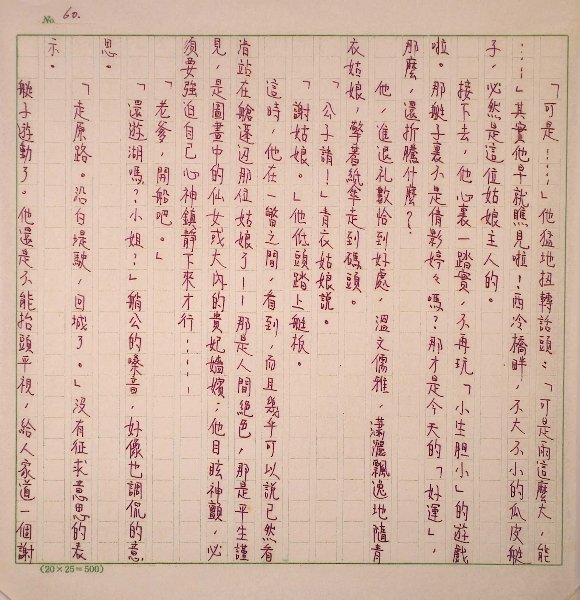 No. 60.
「可是……」他猛地扭轉話頭：「可是雨這麼大，能
……」其實他早就瞧見啦！西冷橋畔，不大不小的瓜皮艇
子，必然是這位姑娘主人的。
接下去，他心裏一踏實，不再玩「小生胆小」的遊戲
啦。那艇子裏不是倩影婷々嗎？那才是今天的「好運」，
那麼，還折騰什麼？
他，進退礼數恰到好處，溫文儒雅，瀟灑飄逸地隨青
衣姑娘，擎著紙傘走到碼頭。
「公子請！」青衣姑娘說。
「謝姑娘。」他低頭踏上艇板。
這時，他在一瞥之間，看到，而且幾乎可以說已然看
清站在艙邊迎那位姑娘了——那是人間絕色，那是平生謹
見，是圖畫中的仙女或大內的貴妃嬙嬪；他目眩神顫，必
須要強迫自己心神鎮靜下來才行……
「老爹，開船吧。」
「還遊湖嗎？小姐？」艄公的嗓音，好像也調侃的意
思。
「走原路。沿白堤駛，回城了。」没有征求意思的表
示。
艇子遊動了。他還是不能抬頭平視，給人家道一個謝
(20×25=500)